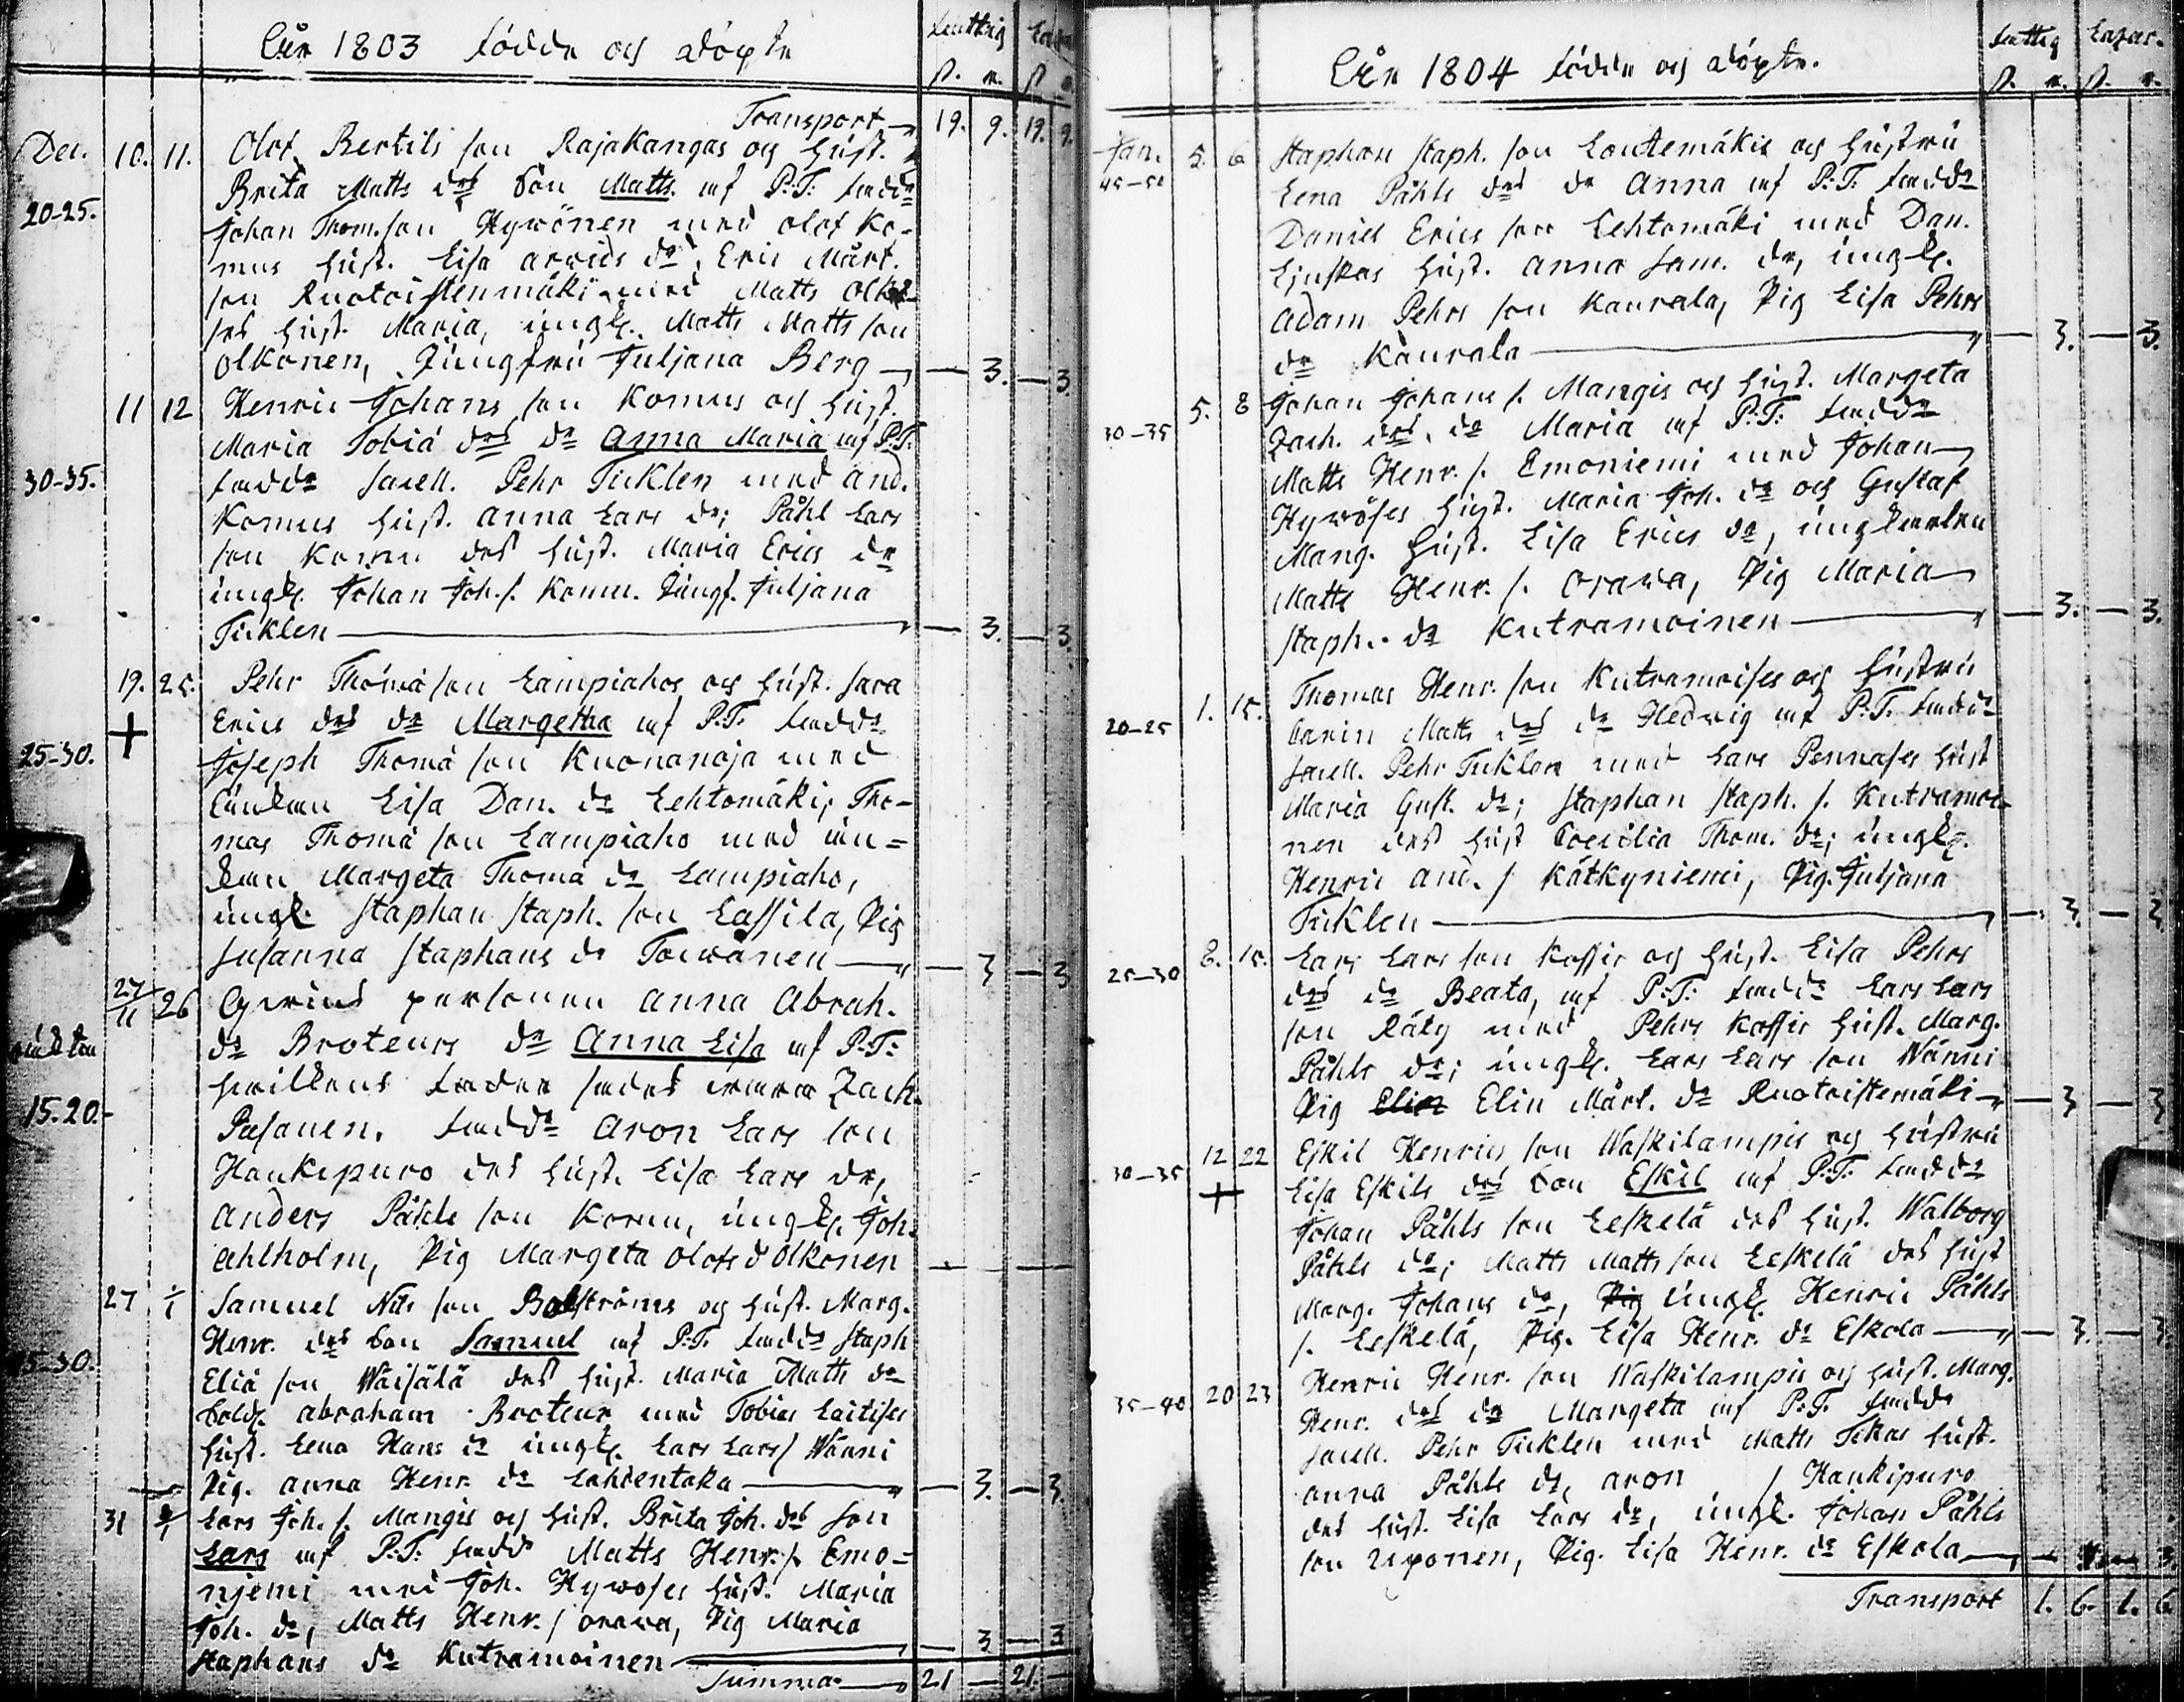 Åår 1803 födde och döpte
fattig Lasar.
s. r. s. r.
Transport 19. 9. 19. 9.
Dec. 10. 11. Olof Bertils son Rajakangas och hust.
Brita Matts dr son Matts af P:T: fadd
20-25.
Johan Thom. son Hywönen med Olof Ko-
mus hust. Lisa Arvids dr, Eric Mårt.
son Ruotoistenmäki med Matts Olko-
ses hust. Maria, ungk. Matts Matts son
Olkonen, Jungfru Juljana Berg — 3. — 3.
11 12 Henric Johans son Komus och hust.
Maria Tobiä drs dr Anna Maria af P:T:
30-35. fadd Pehr Ticklen med And.
Komus hust. Anna Lars dr; Påhl Lars
son Komu des hust. Maria Erics dr
ungk. Johan Joh. s. Komu. Jungf. Juljana
Ticklen — 3. — 3.
19. 25. Pehr Thomä son Lampiahos och hust. Sara
+ Erics drs dr Margetha af P.T. fadd
25-30. Joseph Thomä son Kuonanoja med
Enkan Lisa Dan. dr Lehtomäki, Tho-
mas Thomä son Lampiaho med än-
kan Margeta Thomä dr Lampiaho,
ungk. Staphan Staph. son Lassila, Pig
Susanna Staphans dr Toiwanen — 3 — 3
27/11 26 personen Anna Abrah.
dr Broteurs dr Anna Lisa af P.T:
hvilkens fader sades vara Zach.
15.20.- Pasanen. fadd Aron Lars son
Haukipuro des hust. Lisa Lars dr,
Anders Påhls son Komu, ungk. Joh.
Ahlholm, Pig Margeta Olofs d Olkonen — —
27 1/1 Samuel Nils son Bolströms och hust. Marg.
Henr. drs son Samuel af P.T. fadd Staph
25-30. Eliä son Wäisälä des hust. Maria Matts dr
Sold. Abraham Broteur med Tobias Laitises
hust. Lena Hans dr ungk. Lars Lars s Wänni
Pig. Anna Henr. dr Lahdentaka — 3. — 3.
31 Lars Joh. s. Mangis och hust. Brita Joh. drs son
Lars af P.T: fadd Matts Henr. s. Emo-
njemi med Joh. Hywöses hust. Maria
Joh. dr, Matts Henr. s Orawa, Pig Maria
Staphans dr Kutramoinen — 3 — 3
Summa 21 — 21. —
Åår 1804 födde och döpte.
fattig Lasar.
s. r. s. r.
Jan. 5. 6 Staphan Staph. son Loutemäkis och hustru
45-50 Lena Påhls drs dr Anna af P:T. fadd
Daniel Erics son Lehtomäki med Dan.
hust. Anna Sam. dr, ungk.
Adam Pehrs son Kaurala, Pig Lisa Pehrs
dr Kaurala — 3. — 3.
5. 8 Johan Johans s. Mangis och hust. Margeta
30-35 Zach. drs. dr Maria af P:T. fadd
Matts Henr. s. Emoniemi med Johan
Hywöses hust. Maria Joh. dr och Gustaf
Mang. hust. Lisa Erics dr, ungkarlen
Matts Henr. s. Orawa, Pig Maria
Staph. dr Kutramoinen — 3. — 3.
1. 15. Thomas Henr. son Kutramoises och hustru
20-25 Carin Matts drs dr Hedwig af P.T. fadd
Pehr Ticklen med Lars Pennases hust
Maria Gust. dr; Staphan Staph. s. Kutramoi-
nen des hust Coecilia Thom. dr; ungk.
Henric And. s Kätkyniemi, Pig. Juljana
Ticklen — 3 — 3
8. 15. Lars Lars son Kossis och hust. Lisa Pehrs
25-30 drs dr Beata, af P:T: fadd Lars Lars
son Räty med Pehrs Kossis hust. Marg.
Påhls dr; ungk. Lars Lars son Wänni
Pig Elin Elin Mårt. dr Ruotoistemäki — 3 — 3
12 22 Eskil Henrics son Waskilampis och hustru
30-35 + Lisa Eskils drs son Eskil af P:T. fadd
Johan Påhls son Leskelä des hust. Walborg
Påhls dr; Matts Matts son Leskelä des hust
Marg. Johans dr, Pig ungk. Henric Påhls
s. Leskelä, Pig. Lisa Henr. dr Eskola — 3. — 3.
20 23 Henric Henr. son Waskilampis och hust. Marg.
35-40 Henr. drs dr Margeta af P.T. fadd
Pehr Ticklen med Matts Tikas hust.
Anna Påhls dr, Aron s Haukipuro
des hust. Lisa Lars dr, ungk. Johan Påhls
son Uponen, Pig. Lisa Henr. dr Eskola
Transport 1. 6. 1. 6